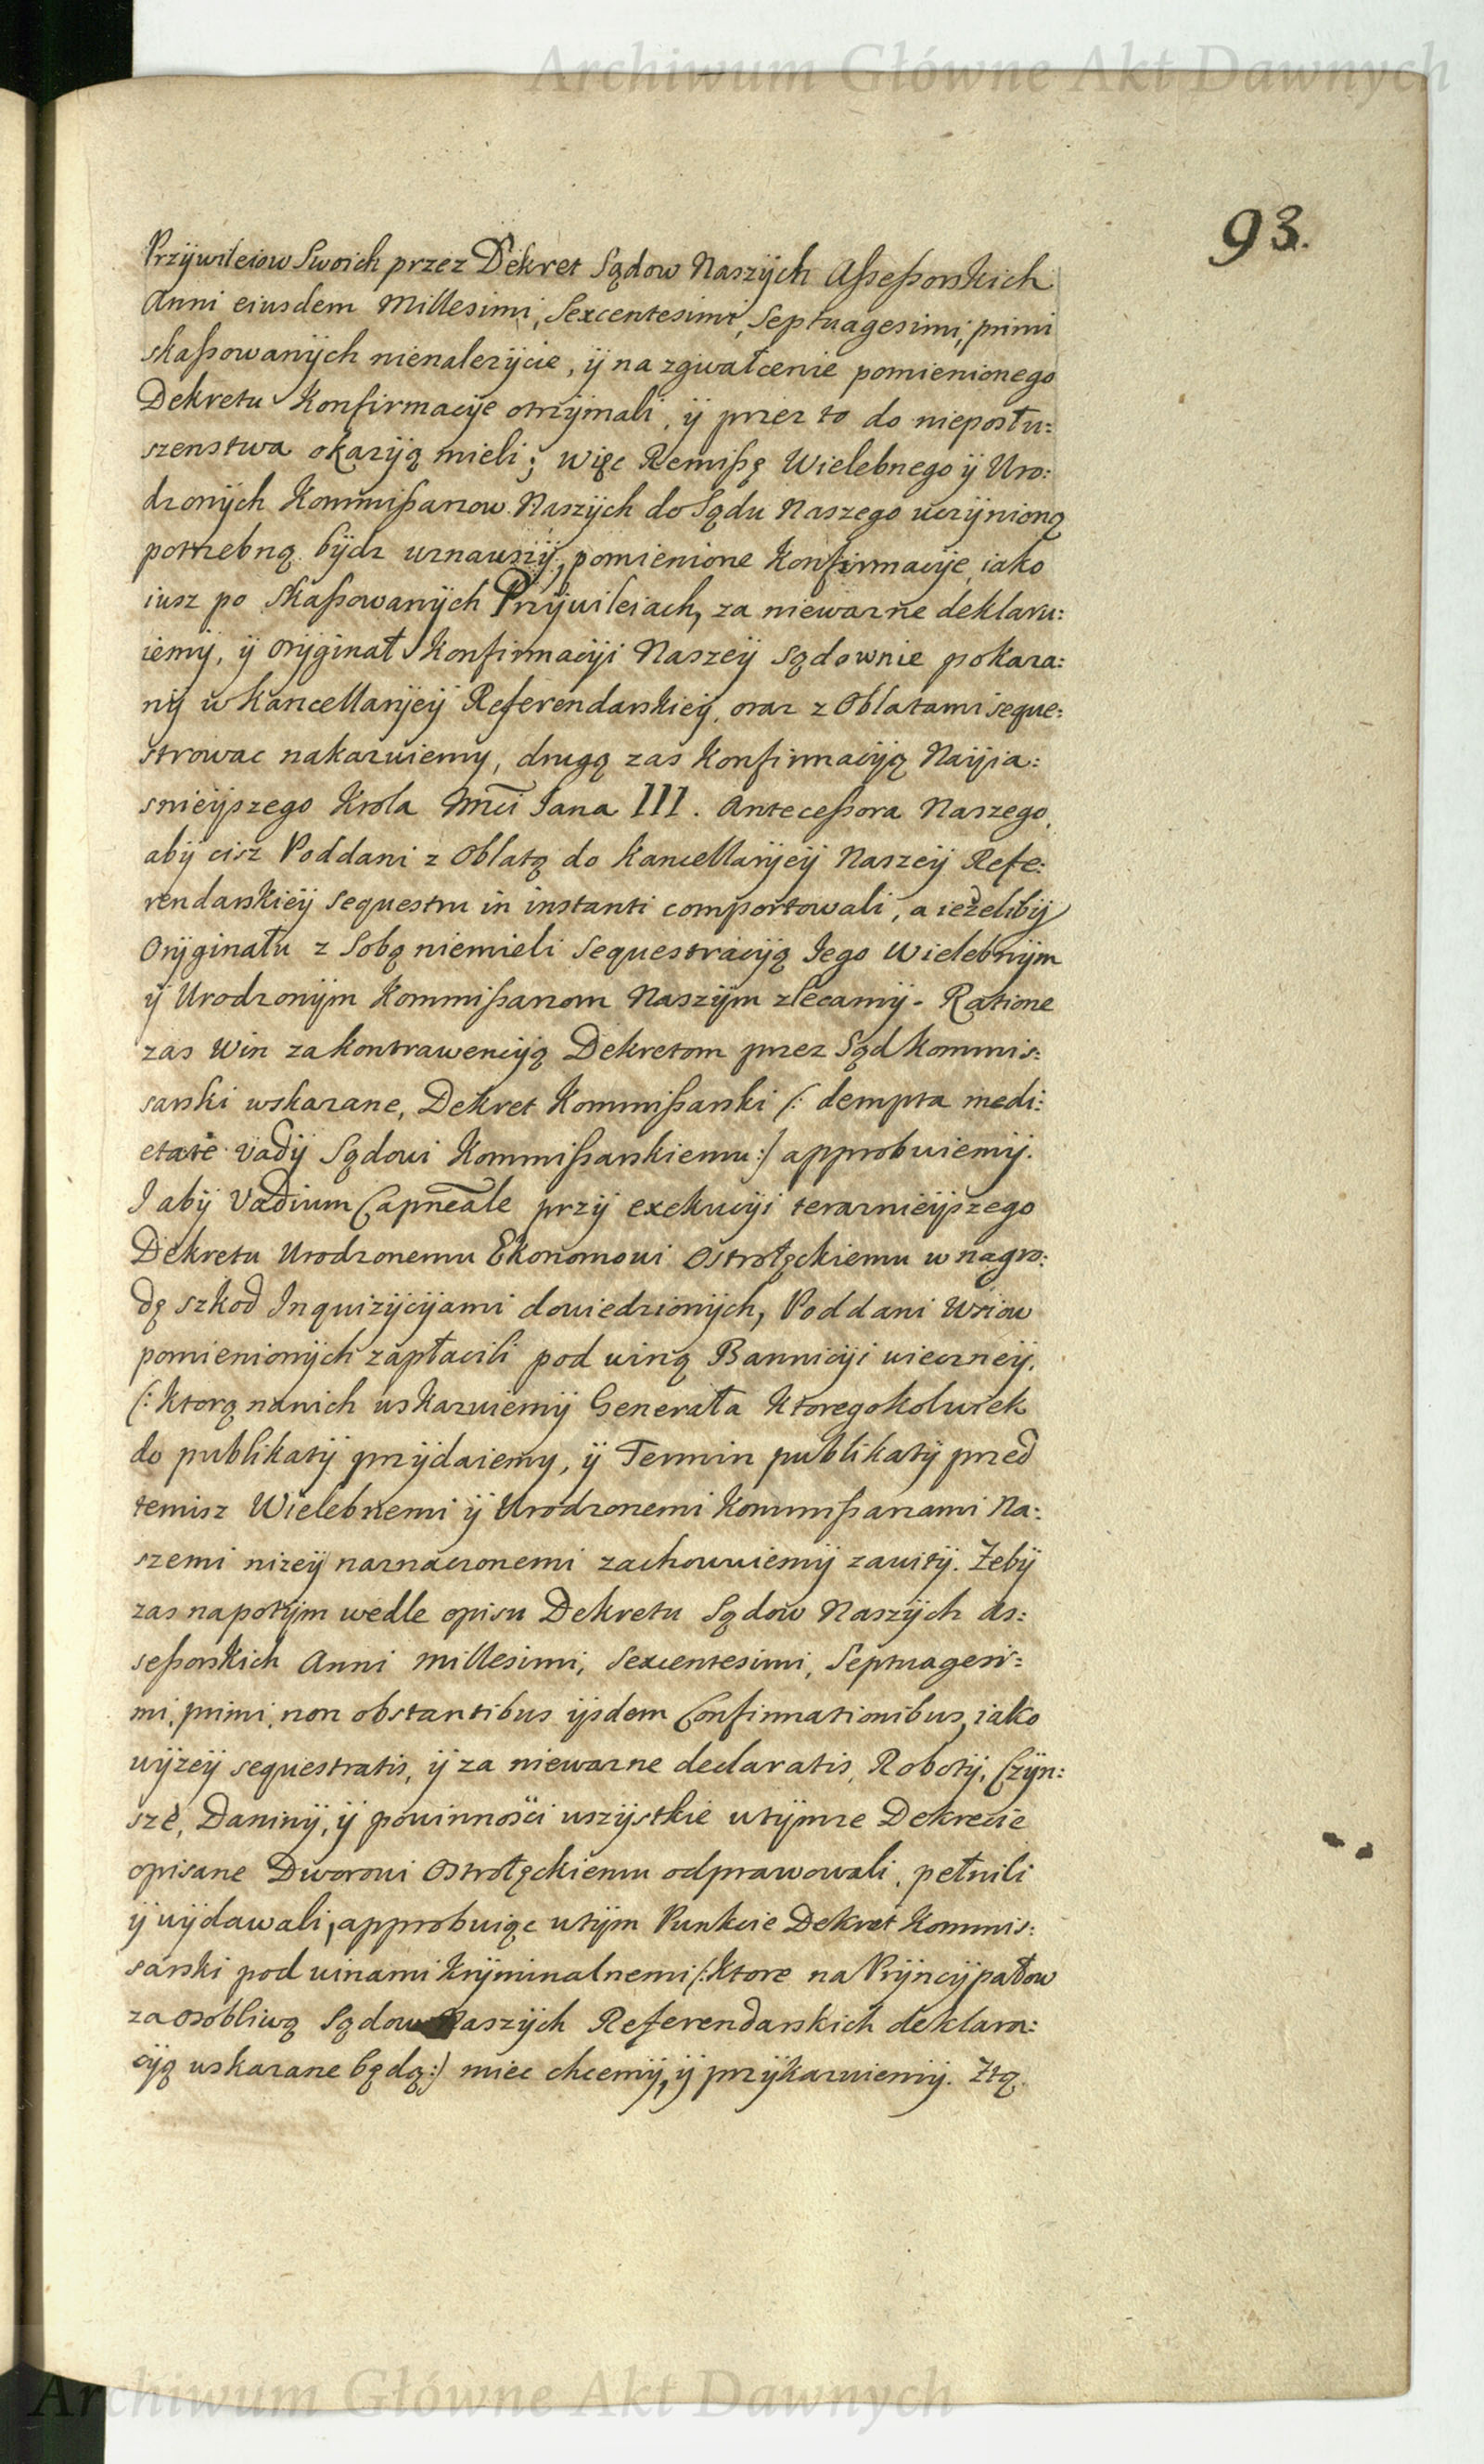 Archiwum Główne Akt Dawnych
93.
Przÿwileiow Swoich przez Dekret Sądow Naszÿch Aſseſsorskich
Anni eiusdem Millesimi, Sexcentesimi, Septuagesimi, primi
skaſsowanÿch nienalezÿcie, ÿ na zgwałcenie pomienionego
Dekretu Konfirmacÿe otrzÿmali, ÿ przez to do nieposłu:
szenstwa okazÿą mieli; więc Remiſsę Wielebnego ÿ Uro:
dzonÿch Kommiſsarzow Naszÿch do Sądu Naszego uczÿnioną
potrzebną bÿdz uznawszÿ, pomienione Konfirmacÿe, iako
iusz po Skaſsowanÿch Przÿwileiach, za niewazne deklaru:
iemÿ, ÿ orÿginał Konfirmacÿi Naszeÿ sądownie pokaza:
nÿ w Kancellarÿeÿ Referendarskieÿ, oraz z Oblatami seque:
strowac nakazuiemy, drugą zas Konfirmacÿią Naÿia:
snieÿszego Krola Mci Jana III. Anteceſsora Naszego,
abÿ cisz Poddani z Oblatą do Kancellarÿeÿ Naszeÿ Refe:
rendarskieÿ Sequestru in instanti comportowali, a ieżelibÿ
Orÿginału z Sobą niemieli Sequestracÿą Iego Wielebnÿm
ÿ Urodzonÿm Kommiſsarzom Naszÿm zlecamÿ. Ratione
zas Win za kontrawencÿą Dekretom przez Sąd Kommis:
sarski wskazane, Dekret Kommiſsarski /: dempta medi:
etate Vadÿ Sądowi Kommiſsarskiemu :/ approbuiemÿ.
I abÿ Vadium Capneale przÿ exekucÿi terazniejszego
Dekretu Urodzonemu Ekonomowi Ostrołęckiemu w nagro:
dę szkod Inquizÿcÿami dowiedzionÿch, Poddani Wsiow
pomienionÿch zapłacili pod winą Bannicÿi wieczneÿ,
/: ktorą nanich wskazuiemÿ Generała ktoregokolwiek
do publikatÿ przÿdaiemy, ÿ Termin publikatÿ przed
temisz Wielebnemi ÿ Urodzonemi Kommiſsarzami Na:
szemi nizeÿ naznaczonemi zachowuiemÿ zawitÿ. Zebÿ
zas napotÿm wedle opisu Dekretu Sądow Naszÿch As:
seſsorskich Anni Millesimi, Sexcentesimi, Septuagesi:
mi, primi, non obstantibus ÿsdem Confirmationibus, iako
wÿzeÿ sequestratis, ÿ za niewazne declaratis, Robotÿ, Czÿn:
sze, Daninÿ, ÿ powinności wszÿstkie wtÿmze Dekrecie
opisane Dworowi Ostrołęckiemu odprawowali, pełnili
ÿ wÿdawali, approbuiąc wtÿm Punkcie Dekret Kommis:
sarski pod winami krÿminalnemi /: ktore na Prÿncÿpałow
za osobliwą Sądow Naszÿch Referendarskich deklara:
cÿą wskazane będą :/ miec chcemÿ, ÿ przÿkazuiemÿ. Ztą
Archiwum Główne Akt Dawnych